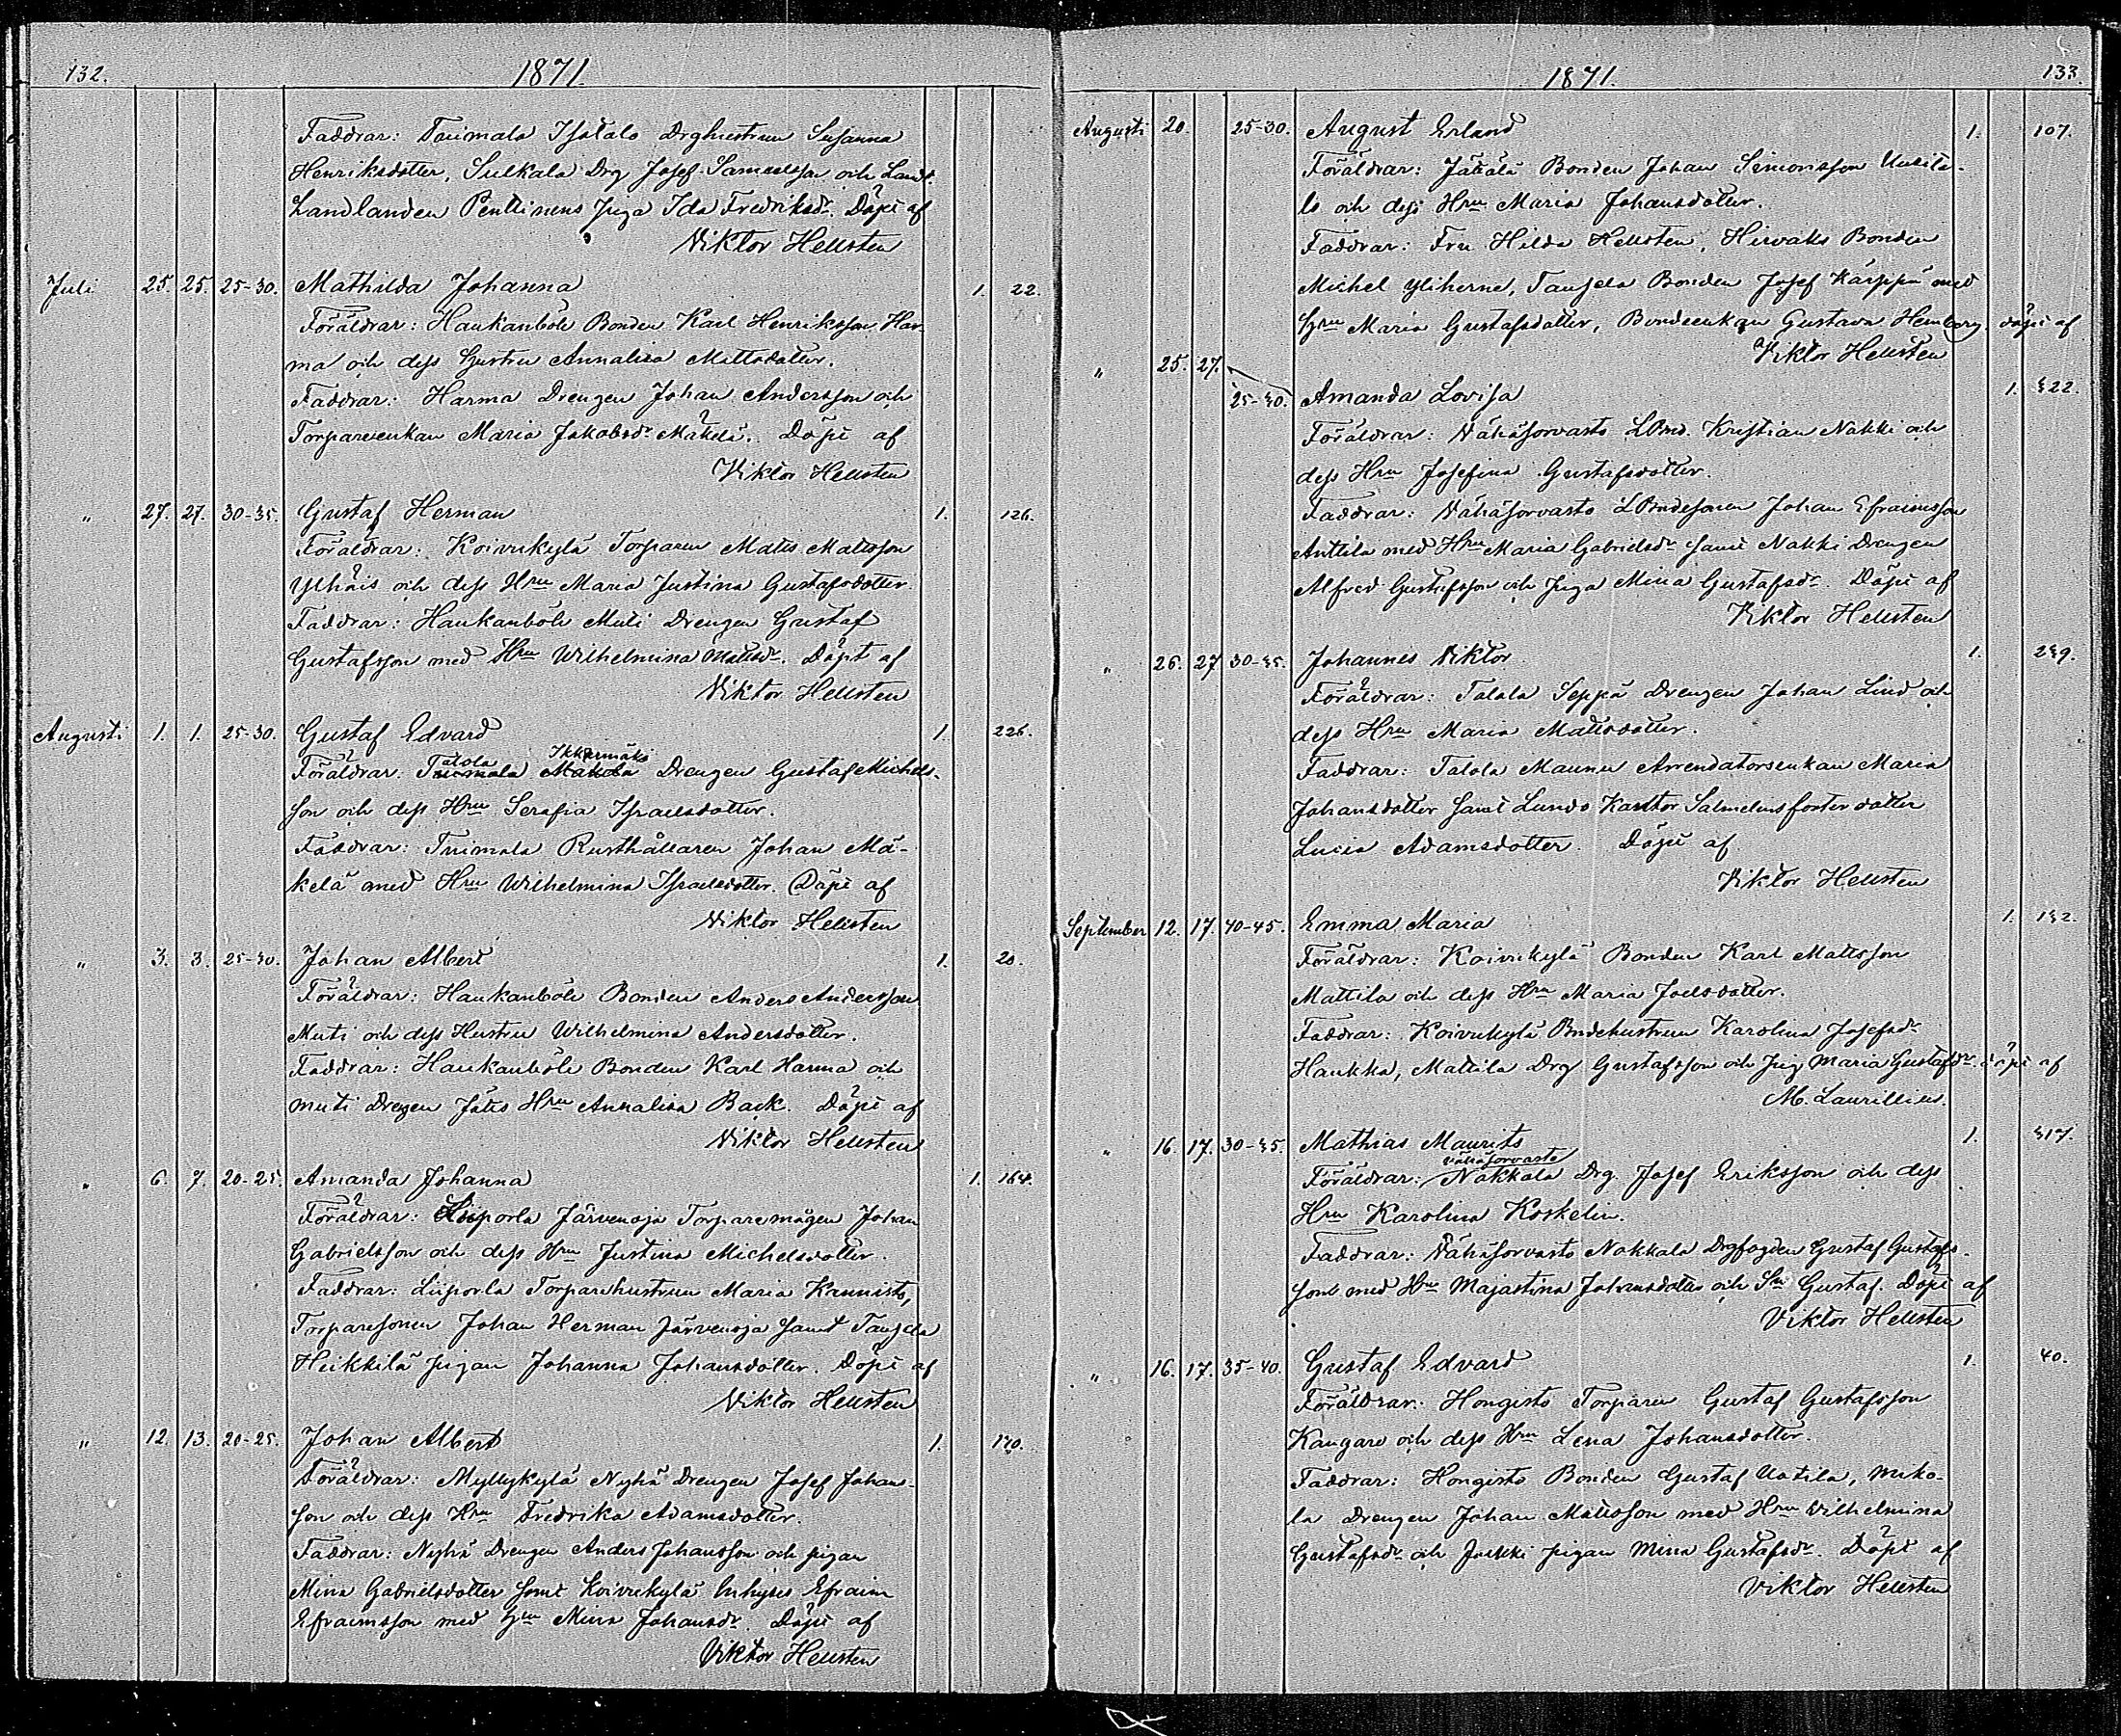 132. 1871.
Faddrar: Tuimala Isotalo Drghustrun Susanna
Henriksdotter, Sulkala Drg Josef Samuelsson och Lands.
Landlanden Penttinens piga Ida Fredriksdr. Döpt af
Viktor Hellsten
Juli 25. 25. 25-30. Mathilda Johanna 1. 22.
Föräldrar: Haukanböle Bonden Karl Henriksson Har-
ma och dess Hustru Annalisa Mattsdotter.
Faddrar: Harma Drengen Johan Andersson och
Torpareenkan Maria Jakobsdr Mäkelä. Döpt af
Viktor Hellsten
" 27. 27. 30-35. Gustaf Herman 1. 126.
Föräldrar: Koivukylä Torparen Matts Mattsson
Ylhäis och dess Hru Maria Justina Gustafsdotter.
Faddrar: Haukanböle Muti Drengen Gustaf
Gustafsson med Hru Wilhelmina Mattsdr. Döpt af
Viktor Hellsten
Augusti 1. 1. 25-30. Gustaf Edvard 1. 226.
Föräldrar: Tuimala Talola Makela Ikkermäki Drengen Gustaf Michels-
son och dess Hru Serafia Israelsdotter.
Faddrar: Tuimala Rusthållaren Johan Mä-
kelä med Hru Wilhelmina Israelsdotter. Döpt af
Viktor Hellsten
" 3. 3. 25-30. Johan Albert 1. 20.
Föräldrar: Haukanböle Bonden Anders Andersson
Muti och dess Hustru Wilhelmina Andersdotter.
Faddrar: Haukanböle Bonden Karl Harma och
Muti Drengen Hru Annalisa Back. Döpt af
Viktor Hellsten
" 6. 7. 20-25. Amanda Johanna 1. 164.
Föräldrar: Liiporla Järvenoja Torparemågen Johan
Gabrielsson och dess Hru Justina Michelsdotter.
Faddrar: Liiporla Torparehustrun Maria Kannisto,
Torparesonen Johan Herman Järvenoja samt Tausela
Heikkilä pigan Johanna Johansdotter. Döpt af
Viktor Hellsten
" 12. 13. 20-25. Johan Albert 1. 170.
Föräldrar: Myllykylä Nyhä Drengen Josef Johans-
son och dess Hru Fredrika Adamsdotter.
Faddrar: Nyhä Drengen Anders Johansson och pigan
Mina Gabrielsdotter samt Koivukylä Inhyses Efraim
Efraimsson med Hru Mina Johansdr. Döpt af
Viktor Hellsten
1871. 133.
Augusti 20. 25-30. August Erland 1. 107.
Föräldrar: Jäkälä Bonden Johan Simonsson Uusita-
lo och dess Hru Maria Johansdotter.
Faddrar: Fru Hilda Hellsten, Hirvaks Bonden
Michel Yliherne, Tausela Bonden Josef Kärppä med
Hru Maria Gustafsdotter, Bondeenkan Gustava Hemborg. döpt af
Viktor Hellsten
" 25. 27. 25-30. Amanda Lovisa 1. 322.
Föräldrar: Vähäsorvasto LBnd. Kristian Nakki och
dess Hru Josefina Gustafsdotter.
Faddrar: Vähäsorvasto LBndesonen Johan Efraimsson
Anttila med Hru Maria Gabrielsdr samt Nakki Drengen
Alfred Gustafsson och piga Mina Gustafsdr. Döpt af
Viktor Hellsten
" 26. 27 30-35. Johannes Viktor 1. 239.
Föräldrar: Talola Seppä Drengen Johan Lind och
dess Hru Maria Mattsdotter.
Faddrar: Talola Maunu Arrendatorsenkan Maria
Johansdotter samt Lundo Kantor Salmelins fosterdotter
Lucia Adamsdotter. Döpt af
Viktor Hellsten
September 12. 17. 40-45. Emma Maria 1. 132.
Föräldrar: Koivukylä Bonden Karl Mattsson
Mattila och dess Hru Maria Joelsdotter.
Faddrar: Koivukylä Bndehustrun Karolina Josefsdr
Haukka, Mattila Drg Gustafsson och pig Maria Gustafsdr. döpt af
M. Laurillius.
" 16. 17. 30-35. Mathias Maurits 1. 317.
Föräldrar: Vähäsorvasto Nakkala Drg. Josef Eriksson och dess
Hru Karolina Koskelin.
Faddrar: Vähäsorvasto Nakkala Drgfogden Gustaf Gustafs-
son med Hru Majastina Johansdotter och Sn Gustaf. Döpt af
Viktor Hellsten
" 16. 17. 35-40. Gustaf Edvard 1. 40.
Föräldrar: Hongisto Torparen Gustaf Gustafsson
Kangare och dess Hru Lena Johansdotter.
Faddrar: Hongisto Bonden Gustaf Uotila, Miko-
la Drengen Johan Mattsson med Hru Vilhelmina
Gustafsdr och Jaakki pigan Mina Gustafsdr. Döpt af
Viktor Hellsten